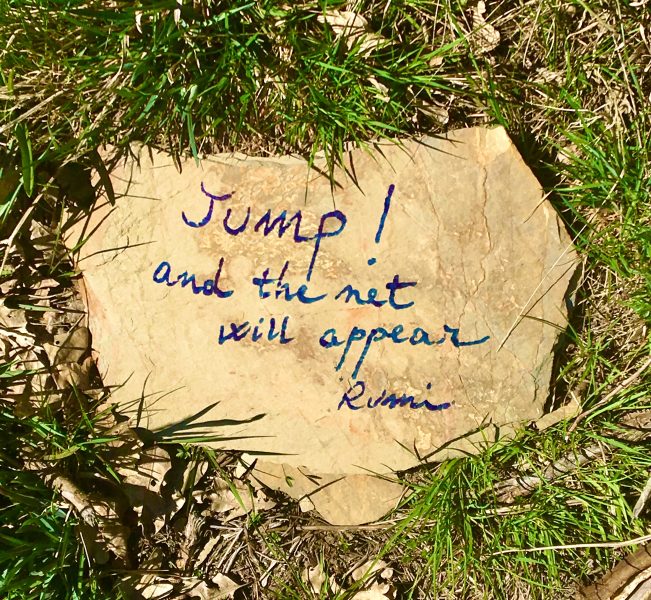 Jump!
and the net
will appear
Rumi